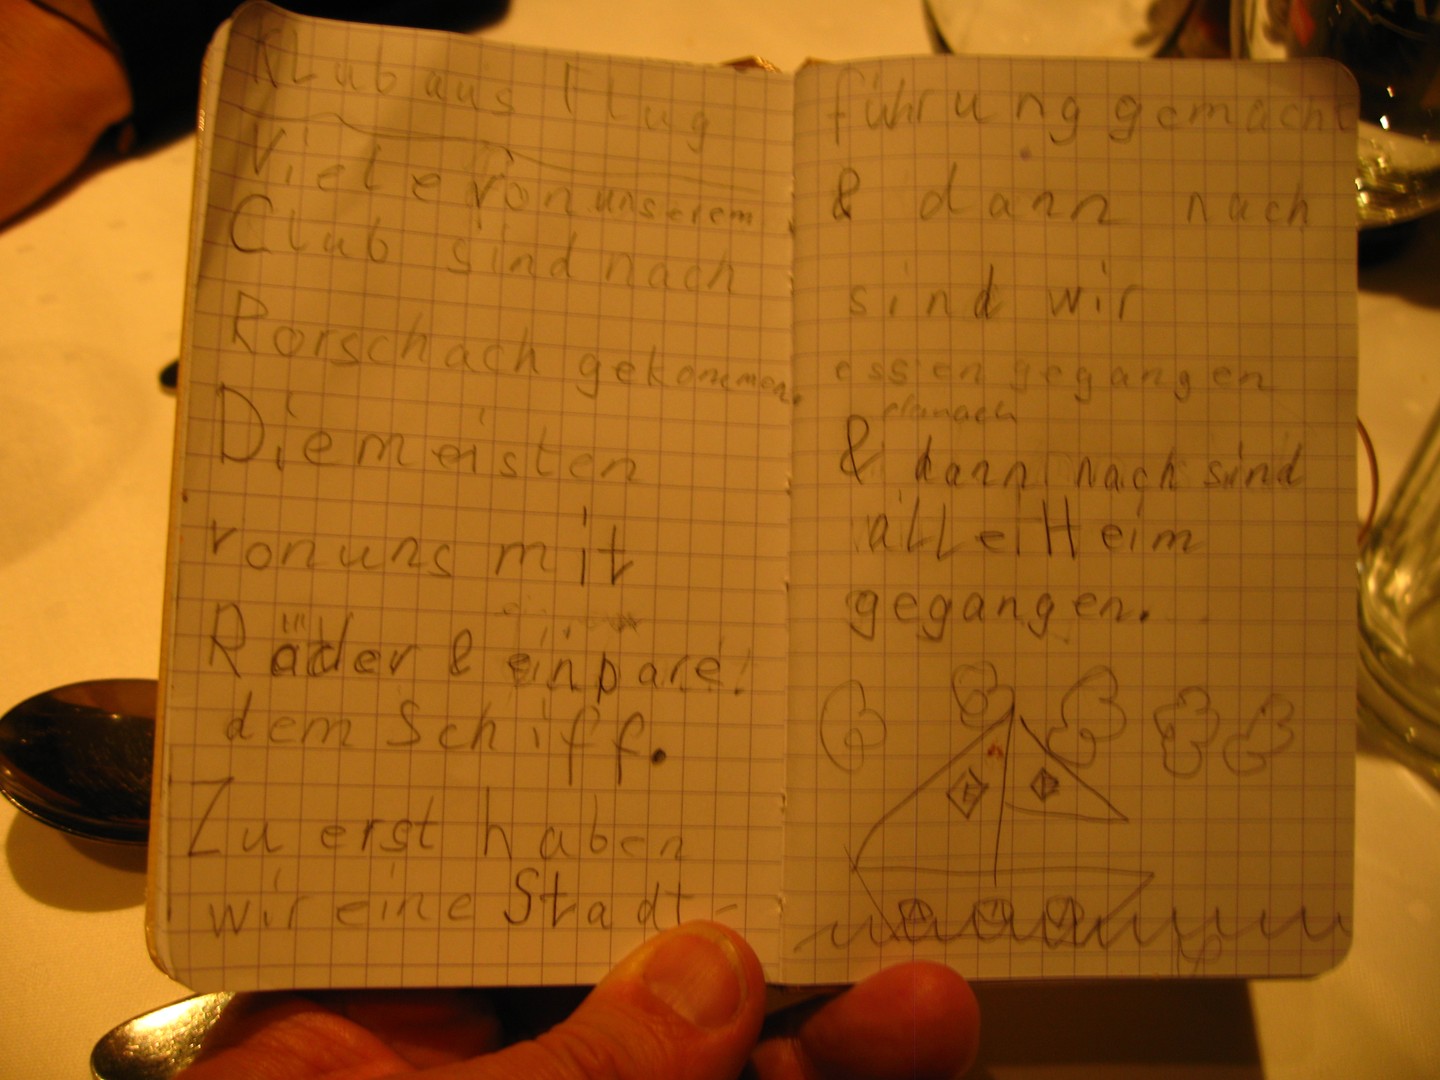 Klub aus Flug
Viele von unserem
Club sind nach
Rorschach gekommen.
Die meisten
von uns mit
Räder & ein pare!
dem Schiff.
Zu erst haben
wir eine Stadt-
führung gemacht
& dann nach
sind wir
essen gegangen
danach
& dann nach sind
alle Heim
gegangen.